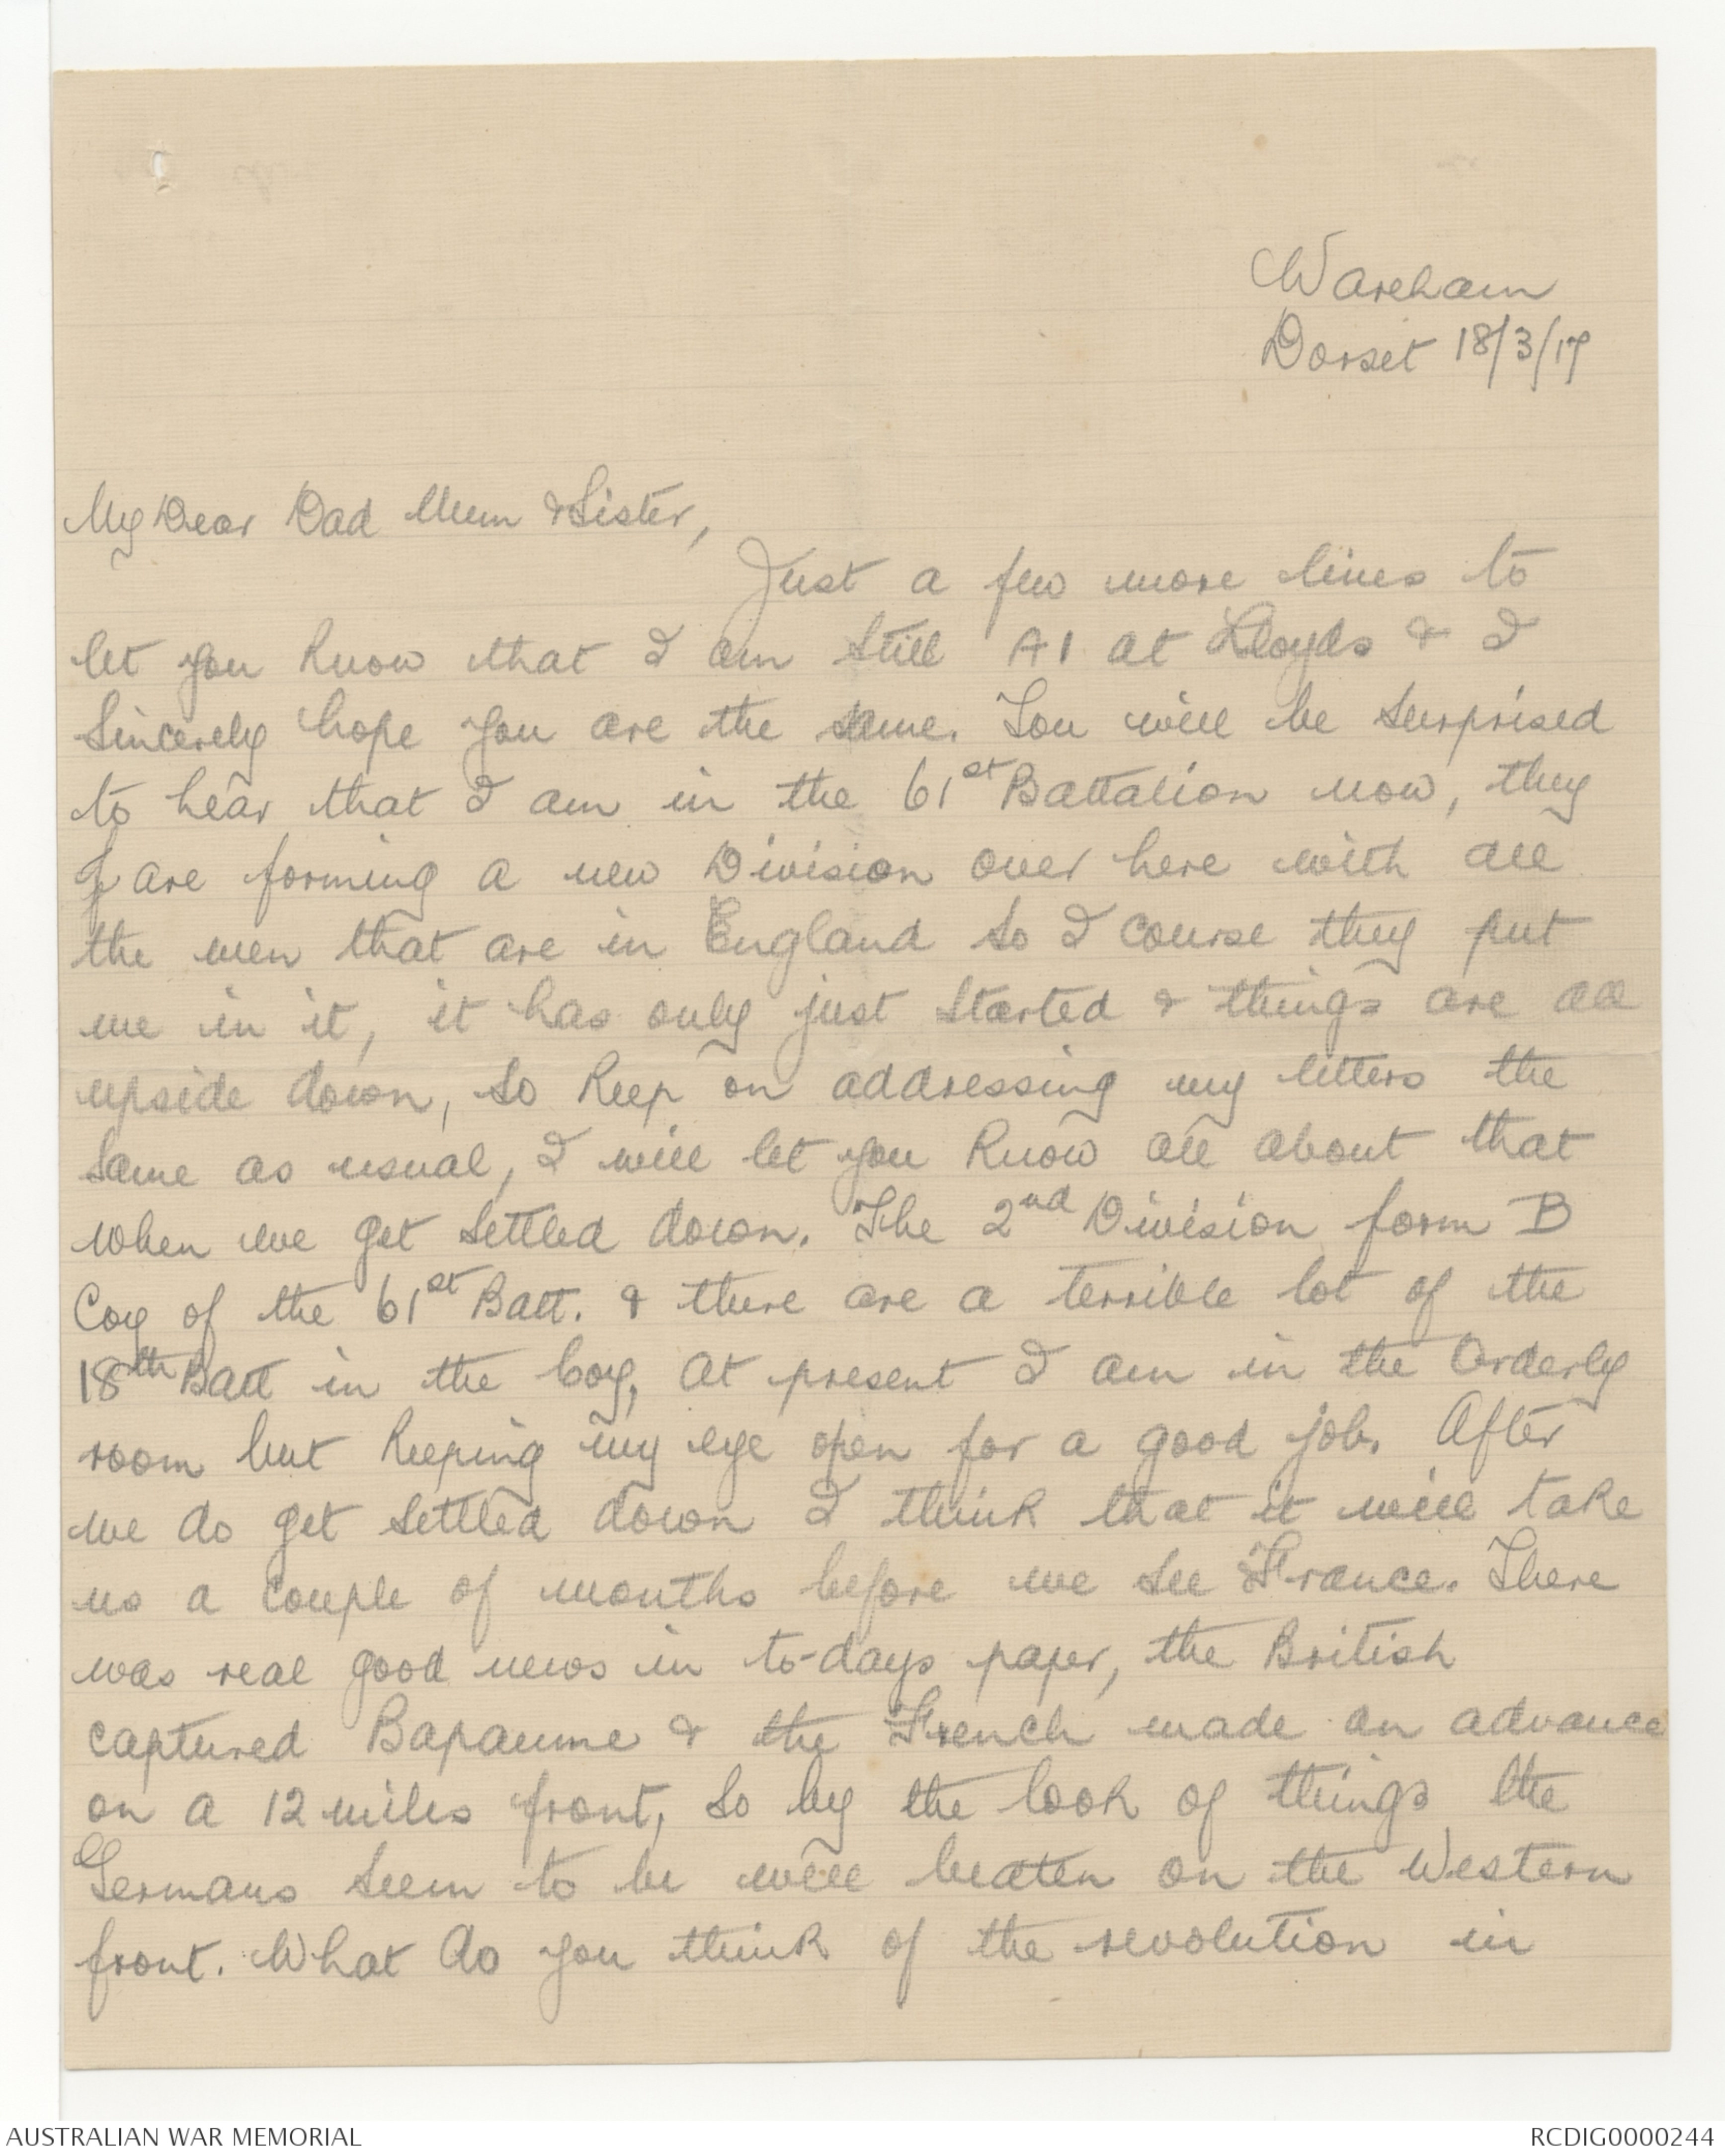 Wareham
Dorset 18/3/17
My Dear Dad Mum & Sister,
Just a few more lines to
let you know that I am still A1 at Lloyds & I
sincerely hope you are the same. You will be surprised
to hear that I am in the 61st Battalion now, they
are forming a new Division over here with all
the men that are in England so I course they put
me in it, it has only just started & things are all
upside down, so keep on addressing my letters the
same as usual, I will let you know all about that
when we get settled down. The 2nd Division form B
Coy of the 61st Batt. & there are a terrible lot of the
18th Batt in the Coy, at present I am in the Orderly
room but keeping my eye open for a good job. After
we do get settled down I think that it will take
us a couple of months before we see France. There
was real good news in to-days paper, the British
captured Bapaume & the French made an advance
on a 12 miles front, so by the look of things the
Germans seem to be well beaten on the Western
front. What do you think of the revolution in
AUSTRALIAN WAR MEMORIAL
RCDIG0000244